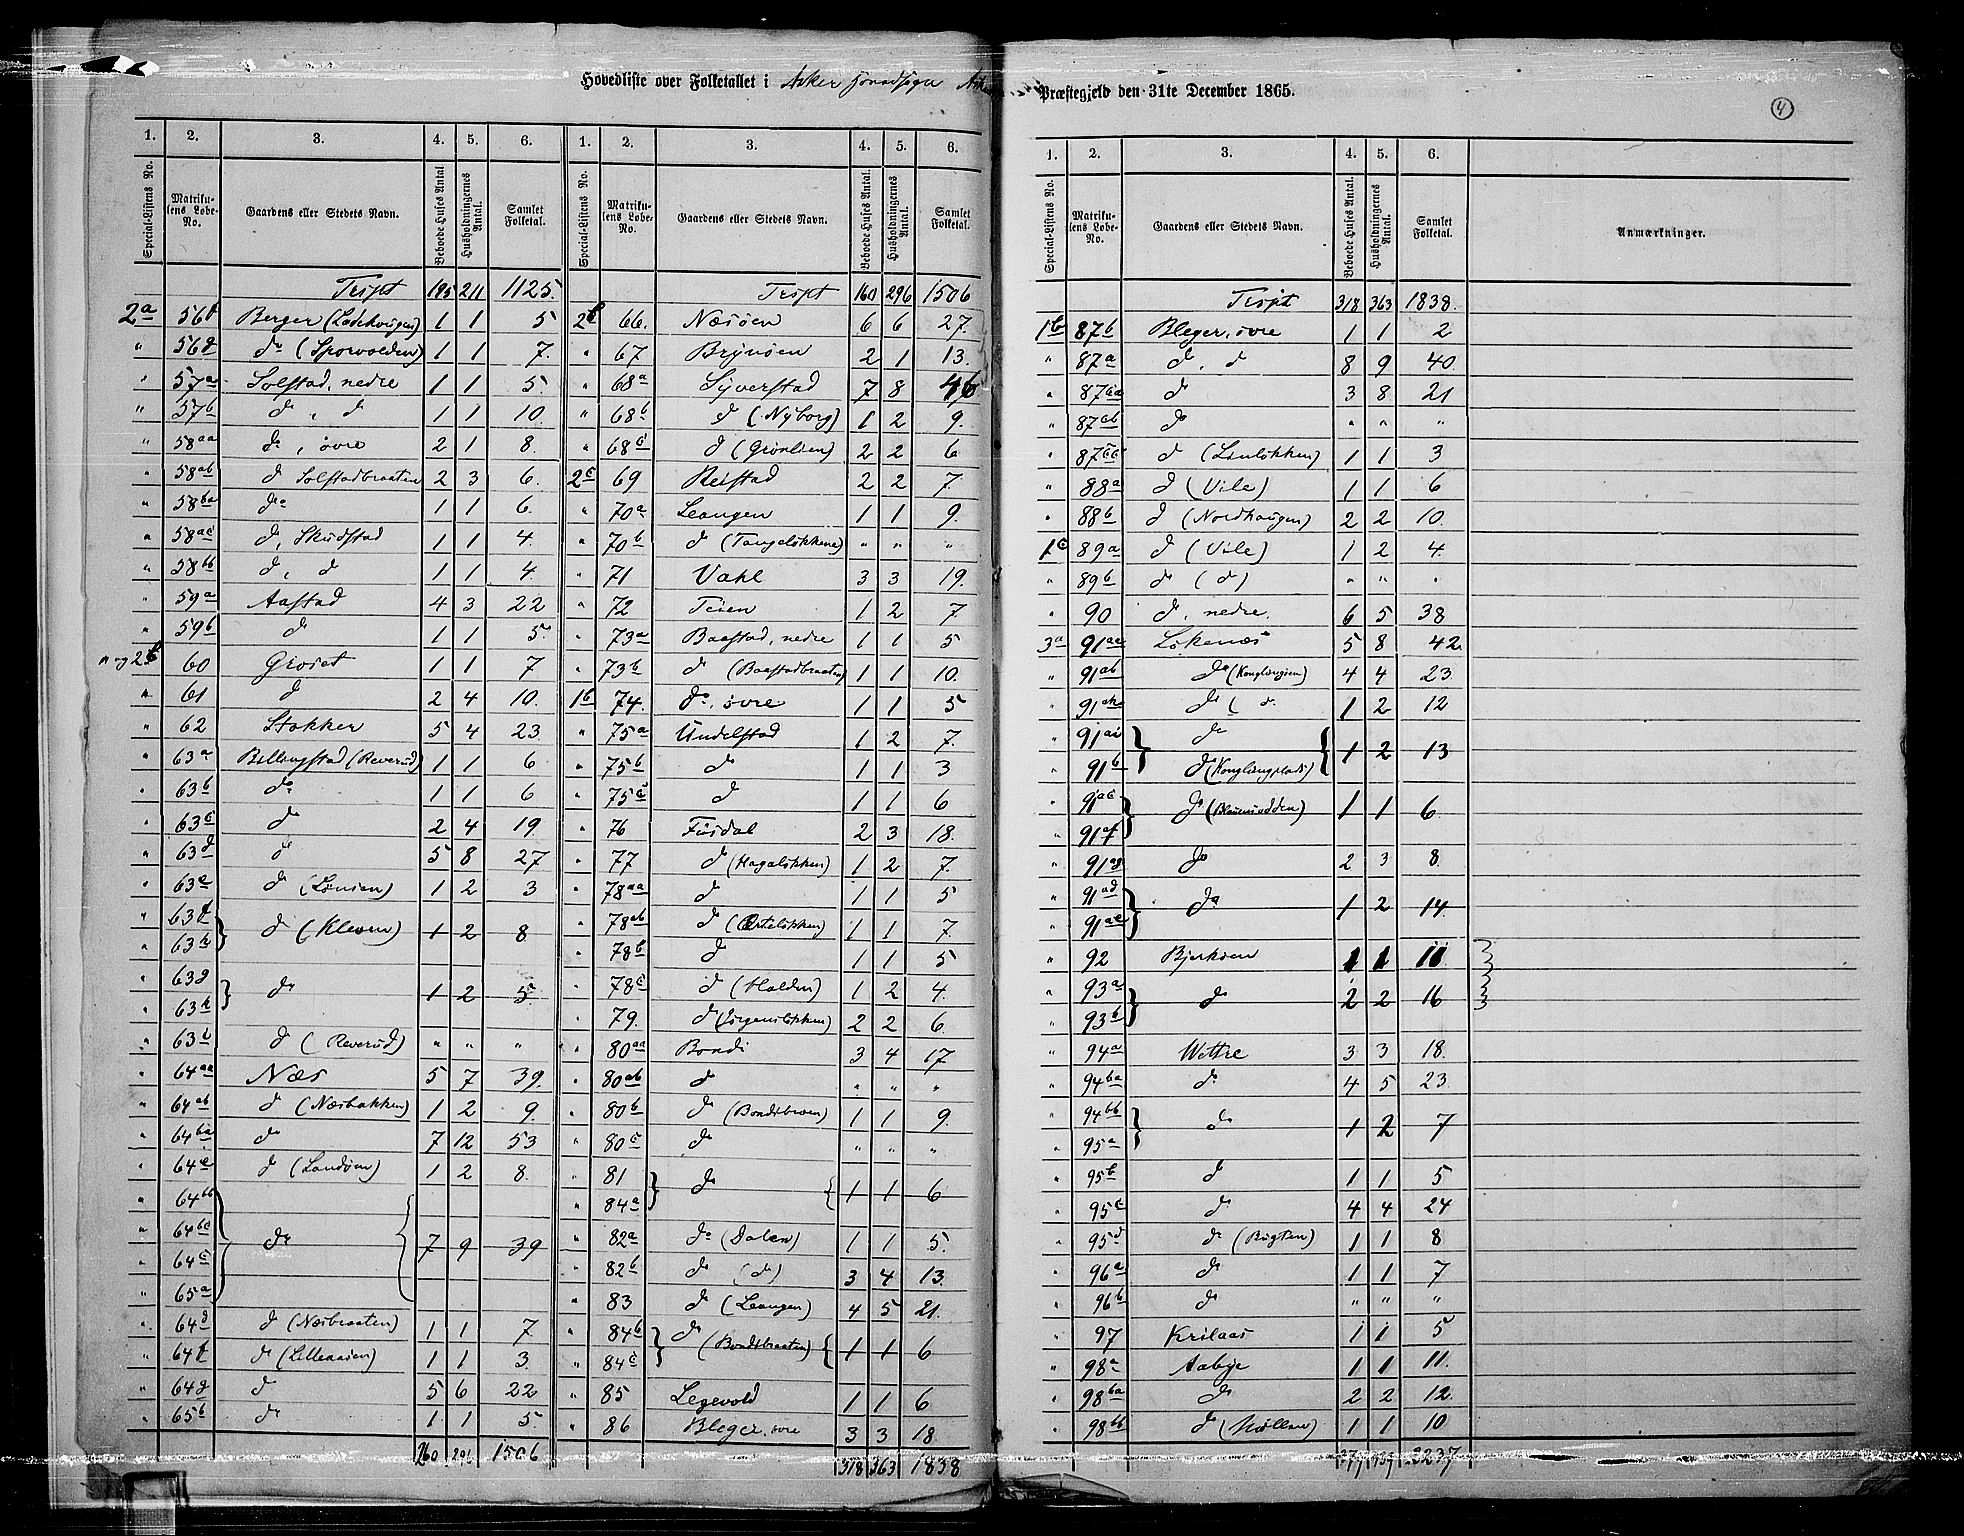 Hovedliste over Folketallet i Asker Præstegjeld den 31te December 1865.
4
1. 2. 3. 4. 5. 6. 1. 2. 3. 4. 5. 6.
Special-Listens No. Matrikulens Løbe-No. Gaardens eller Stedets Navn. Beboede Huses Antal Husholdningernes Antal. Samlet Folketal. Special-Listens No. Matrikulens Løbe-No. Gaardens eller Stedets Navn. Beboede Huses Antal. Husholdningernes Antal. Samlet Folketal.
Trspt 195 211 1125.
2a 56f Berger (Ladehaugen) 1 1 5
" 56g do (Sporvolden) 1 1 7.
" 57a Solstad, nedre 1 1 5.
" 57b d , d 1 1 10.
" 58aa do, øvre 2 1 8.
" 58ab d Solstadbraaten 2 3 6.
" 58ba do 1 1 6.
" 58ac d, Skudstad 1 1 4.
" 58bb d, d 1 1 4.
" 59a Aastad 4 3 22
" 59b d 1 1 5.
" og 2b 60 Groset 1 1 7
" 61 d 2 4 10.
" 62 Stokker 5 4 23.
" 63a Billingstad (Reverud) 1 1 6
" 63b do 1 1 6
" 63c d 2 4 19.
" 63d d 5 8 27
" 63e d (Lønien) 1 2 3
" 63f
" 63k } d (Kleven) 1 2 8
" 63g
" 63h } do 1 2 5
" 63b d (Reverud) " " "
" 64aa Næs 5 7 39.
" 64ab d (Næsbakken) 1 2 9.
" 64ba do 7 12 53
" 64e d (Landøen) 1 2 8.
" 64bb
" 64bc
" 64c
" 65a } do { 7 9 39
" 64d d (Næsbraaten) 1 1 7
" 64f do (Lilleaasen) 1 1 3.
" 64g d 5 6 22
" 65b do 1 1 5
260 296 1506
Trspt 160 296 1506
2b 66. Næsøen 6 6 27.
" 67 Brønøen 2 1 13.
" 68a Syverstad 7 8 46
" 68b d (Nyborg) 1 2 9.
" 68c d (Grønlien) 2 2 6
2c 69 Reistad 2 2 7.
" 70a Leangen 1 1 9.
" 70b d (Tangeløkkene) " " "
" 71 Vahl 3 3 19.
" 72 Teien 1 2 7
" 73a Baastad, nedre 1 1 5
" 73b d (Baastadbraaten) 1 1 10.
1b 74. do, øvre 1 1 5
" 75a Undelstad 1 2 7.
" 75b do 1 1 3
" 75c d 1 1 6
" 76 Fusdal 2 3 18.
" 77 d (Hagaløkken) 1 2 7.
" 78aa d 1 1 5
" 78ab d (Erteløkken) 1 1 7.
" 78b d 1 1 5
" 78c d (Halden) 1 2 4.
" 79. d (Jørgensløkken) 2 2 6.
" 80aa Bondi 3 4 17
" 80ab d " " "
" 80b d (Bondibroen) 1 1 9.
" 80c do " " "
" 81
" 84a } do { 1 1 6
" 82a do (Dalen) 1 1 5.
" 82b d (do) 3 4 13.
" 83 d (Leangen) 4 5 21.
" 84b
" 84c } do (Bondibraaten) { 1 1 6
" 85 Legevold 1 1 6
" 86 Bleger, øvre 3 3 18
318 363 1838
1. 2. 3. 4. 5. 6.
Special-Listens No. Matrikulens Løbe-No. Gaardens eller Stedets Navn. Beboede Huses Antal. Husholdningernes Antal. Samlet Folketal. Anmærkninger.
Trspt 318 363 1838.
1b 87b Bleger, øvre 1 1 2
" 87a d , d 8 9 40
" d 3 8 21
" d " " "
" d 1 1 3
" 88a d (Vile) 1 1 6
" 88b d (Nordhaugen) 2 2 10.
1c 89a d (Vile) 1 2 4.
" 89b d (d) " " "
" 90 d, nedre. 6 5 38
3a 91aa Løkenæs 5 8 42
" 91ab do (Konglungen) 4 4 23
" 91ah do ( do 1 2 12
" 91ai do
" 91b } d (Konglungplads) { 1 2 13
" 91ac
" 91af } d (Blaamudden) 1 1 6.
" 91ag do 2 3 8.
" 91ad
" 91ae } do 1 2 14.
" 92 Bjerkøen 1 1 11
" 93a
" 93b } do 2 2 16
" 94a Wettre 3 3 18.
" 94ba do 4 5 23.
" 94bb
" 95a } do 1 2 7
" 95b d 1 1 5
" 95c d 4 4 24
" 95d do (Bugten) 1 1 8
" 96a do 1 1 7
" 96b do " " "
" 97 Krilaas 1 1 5
" 98a Aabye 1 1 11.
" 98ba do 2 2 12.
" 98bb do (Møllen) 1 1 10
2237